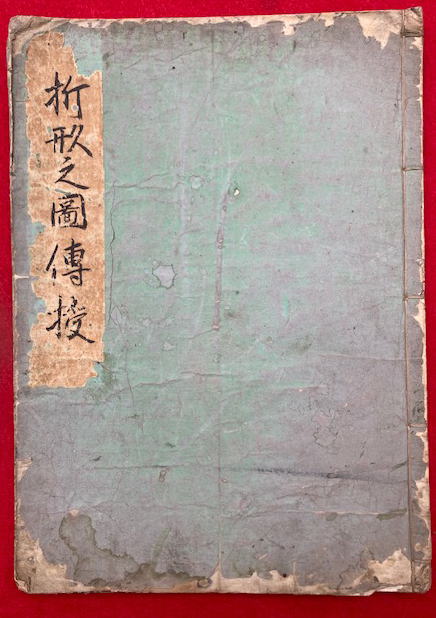 折形之圖傳授